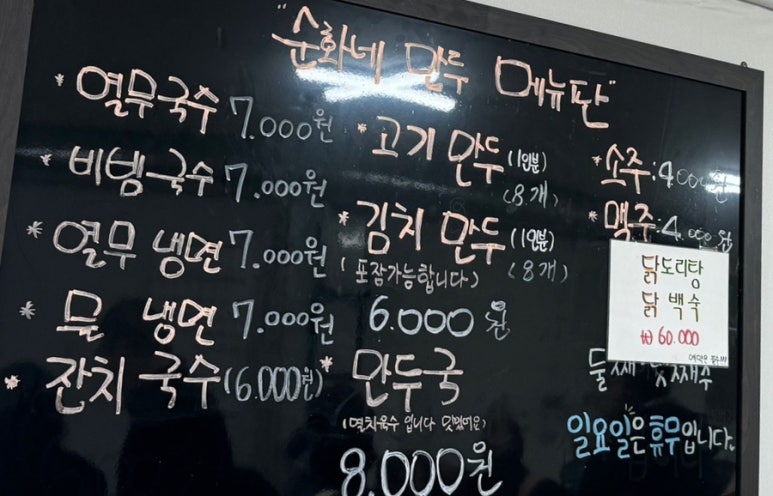 "순화네 만두 메뉴판"
* 열무국수 7.000원
* 비빔국수 7.000원
* 열무 냉면 7.000원
* 물 냉면 7.000원
* 잔치 국수 (6.000원)
* 고기 만두 (1인분)
(8개)
* 김치 만두 (1인분)
(포장가능합니다) (8개)
6.000원
* 만두국
(멸치육수 입니다 맛있어요)
8.000원
* 소주 : 4.000원
* 맥주 : 4.000원
닭도리탕
닭 백숙
₩ 60.000
둘째 넷째주
일요일은 휴무입니다.